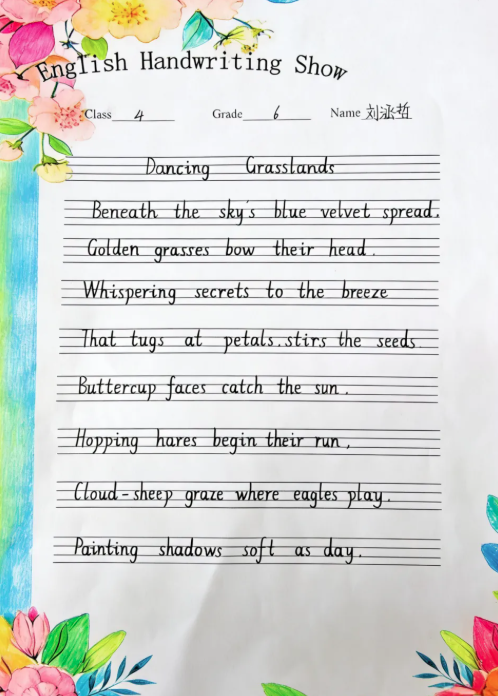 English Handwriting Show
Class 4 Grade 6 Name 刘泳哲
Dancing Grasslands
Beneath the sky's blue velvet spread.
Golden grasses bow their head.
Whispering secrets to the breeze
That tugs at petals.stirs the seeds.
Buttercup faces catch the sun.
Hopping hares begin their run,
Cloud-sheep graze where eagles play.
Painting shadows soft as day.